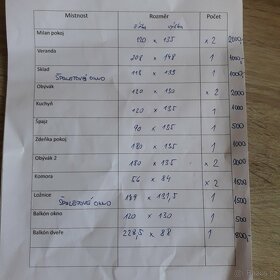 Místnost Rozměr Počet
šířka výška
Milan pokoj 120 x 135 x 2 2000,-
Veranda 208 x 148 1 1000,-
Sklad 118 x 135 1 1000,-
ŠPALETOVÉ OKNO
Obývák 120 x 130 x 2 2000,-
Kuchyň 120 x 135 1 1000
Špajz 90 x 135 1 500,-
Zdeňka pokoj 180 x 135 1 1000
Obývák 2 180 x 135 x 2 2000
Komora 56 x 84 x 2 1500
Ložnice 189 x 137,5 1 1500
ŠPALETOVÉ OKNO
Balkón okno 120 x 130 1 500
Balkón dveře 228,5 x 88 1 800,-